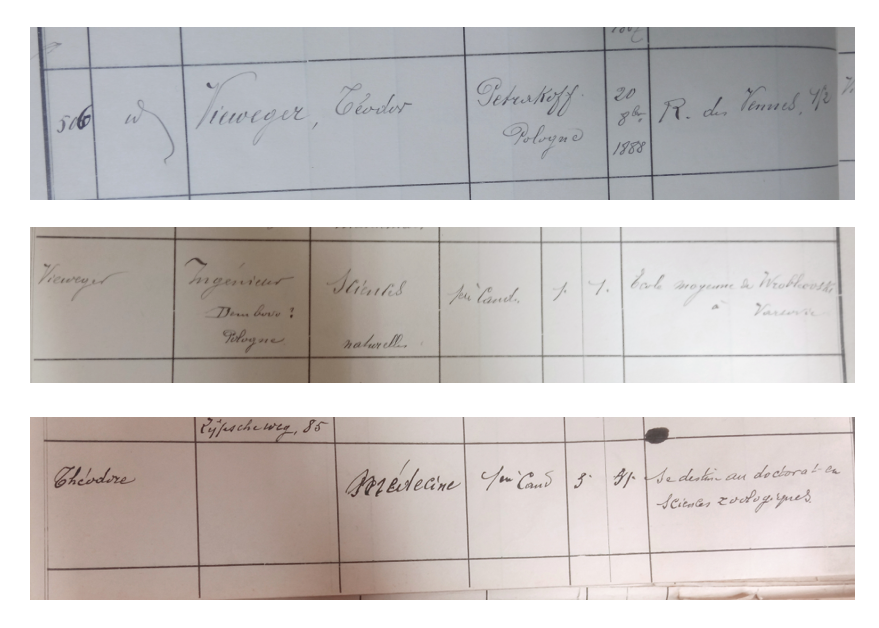 506
Vieweger, Téodor
Petrskoff.
Pologne
20
8bre
1888
R. des Vennes, 42
Vieweger
Ingénieur
Dombovo?
Pologne
Sciences
naturelles
1ère Cand.
1.
1.
École moyenne de Wroblewski
à
Varsovie
Zijpscheweg, 85
Théodore
Médecine
1ère Cand
3.
Se destine au doctorat en
Sciences zoologiques